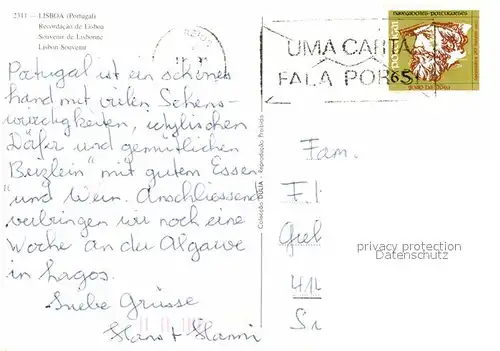 2311 — LISBOA (Portugal)
Recordação de Lisboa
Souvenir de Lisbonne
Lisbon Souvenir
Portugal ist ein schönes
Land mit vielen Sehens-
würdigkeiten, idyllischen
Dörfer und gemütlichen
"Beizlein" mit gutem Essen
und Wein. Anschliessend
verbringen wir noch eine
Woche an der Algarve
in Lagos.
Liebe Grüsse
Hans + Hanni
Colecção DÚLIA - Reprodução Proibida
UMA CARTA
FALA POR SI
navegadores portugueses
portugal
65.
Fam.
F.
Gul
414
privacy protection
Datenschutz